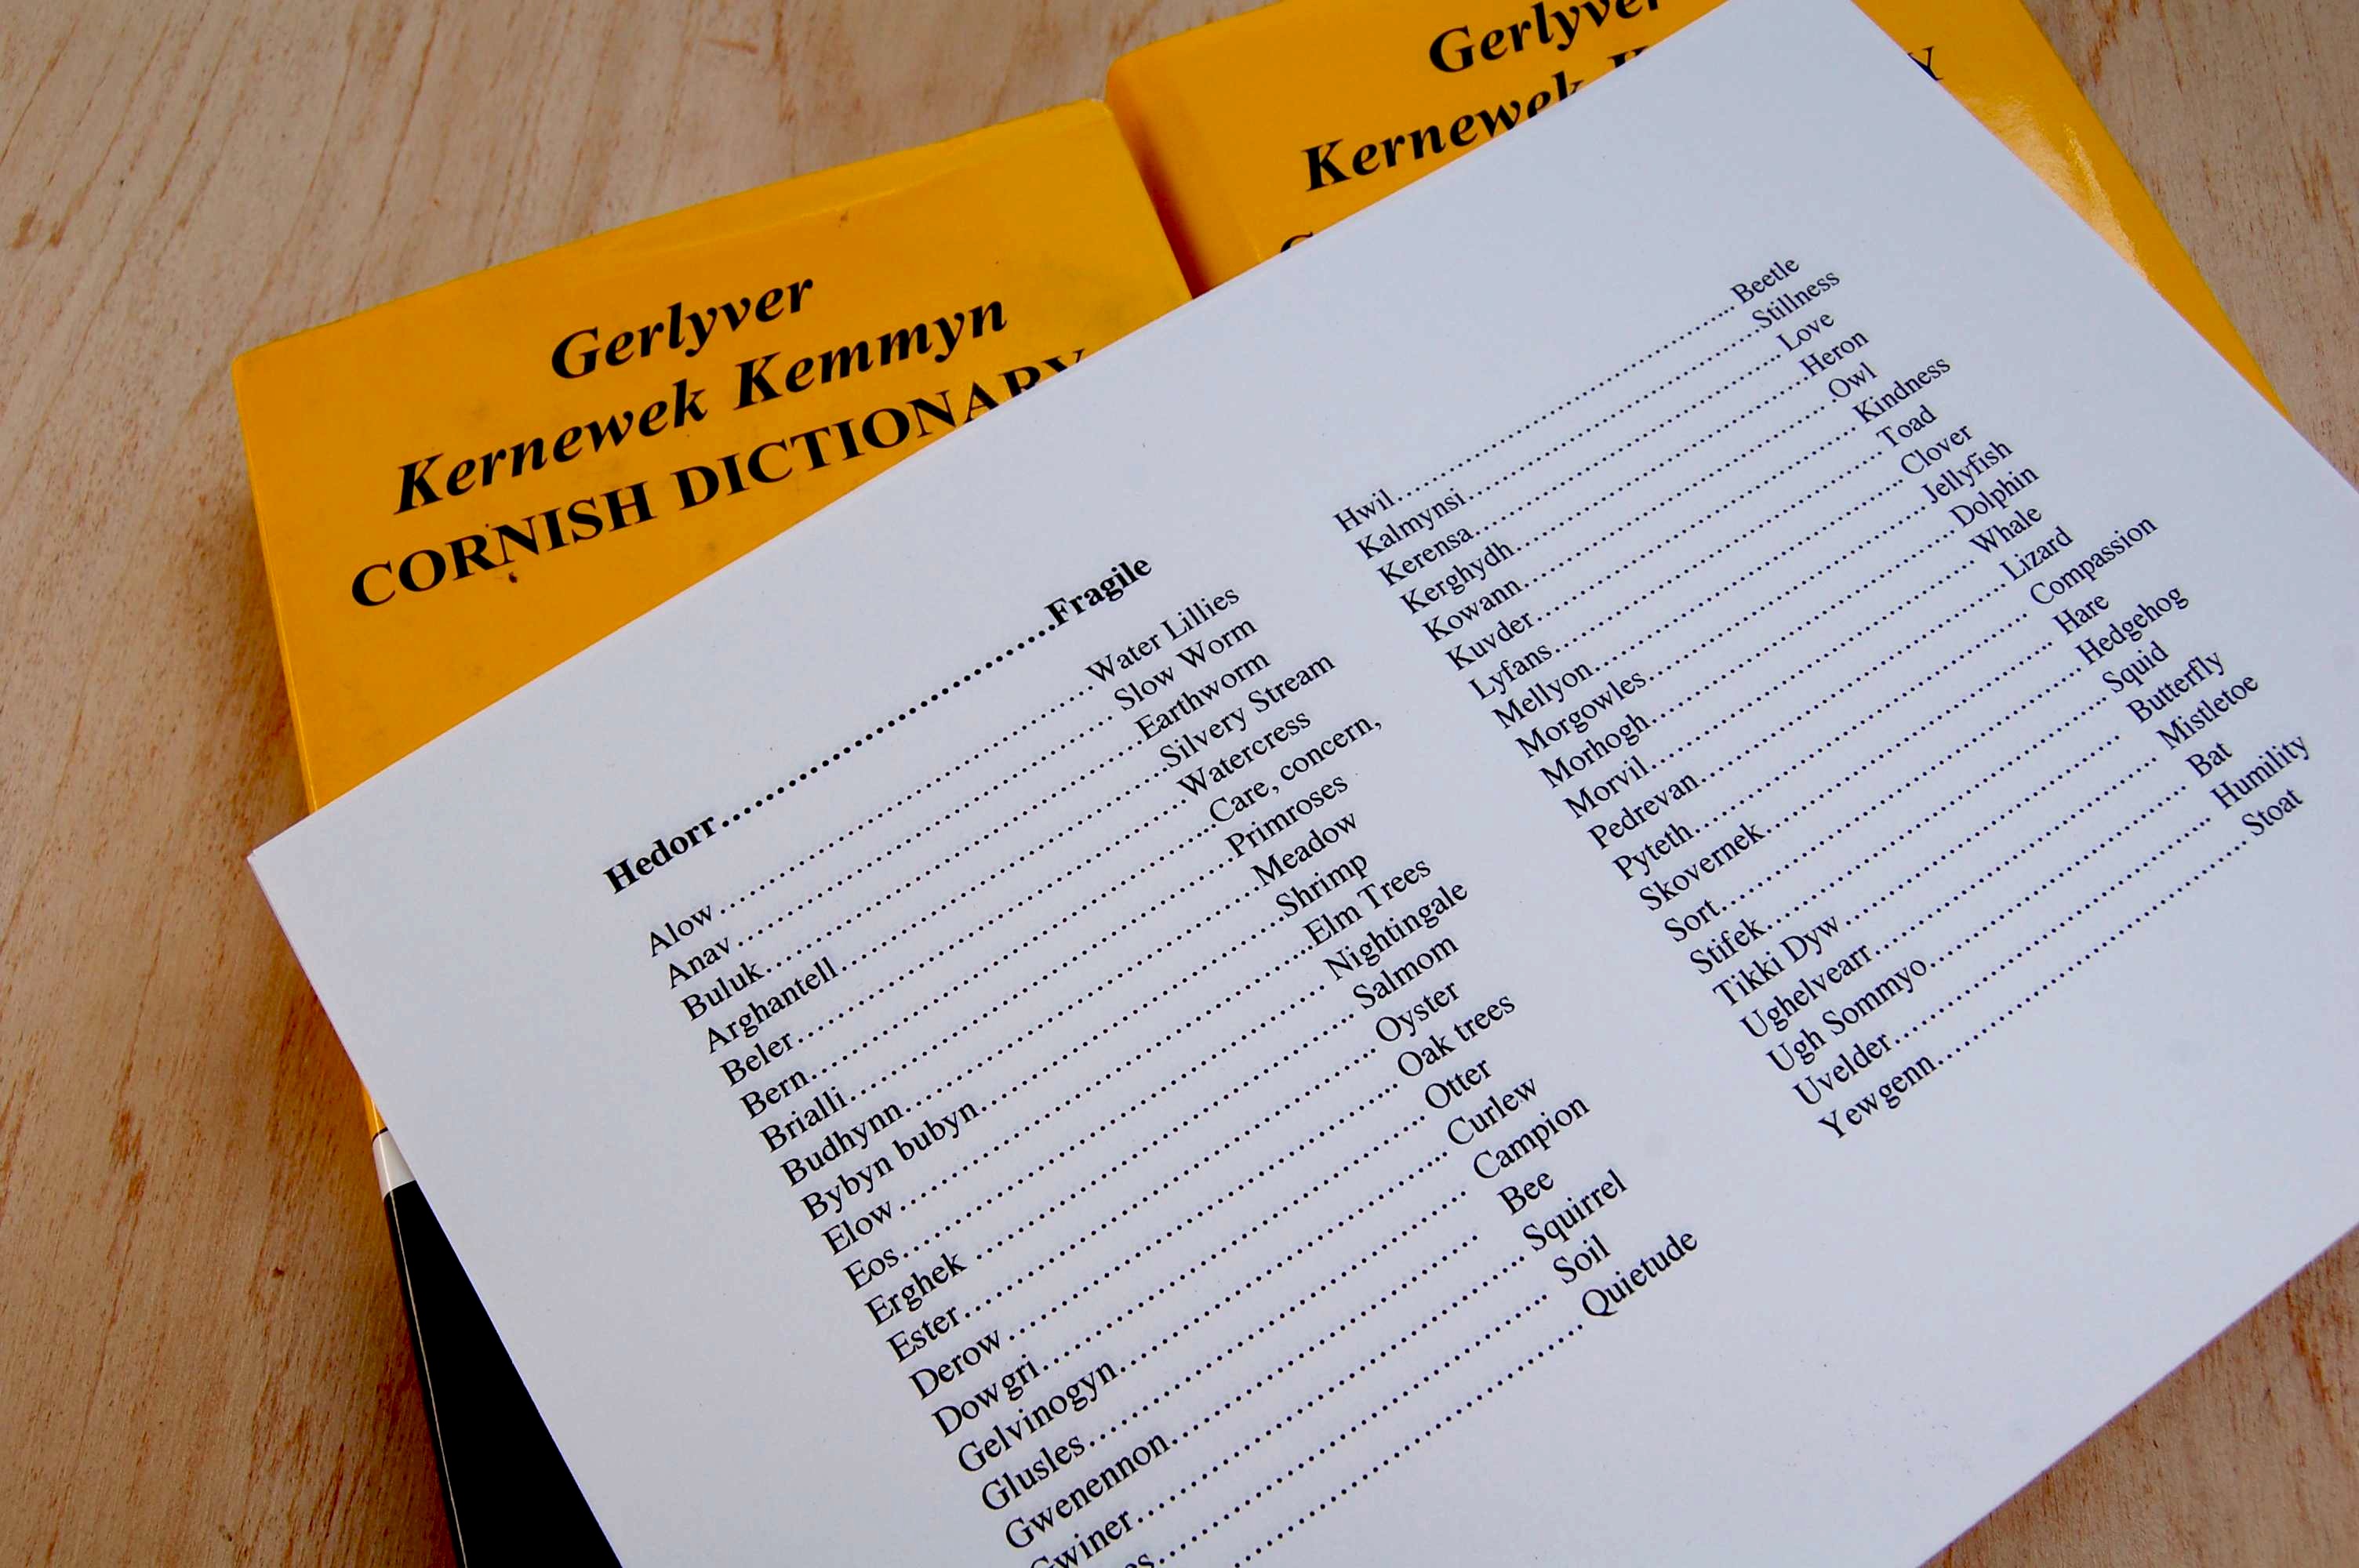 Gerlyver
Kernewek Kemmyn
CORNISH DICTIONARY
Gerlyver
Kernewek
Hedorr..............................Fragile
Alow..............................Water Lillies
Anav.............................. Slow Worm
Buluk..............................Earthworm
Arghantell..............................Silvery Stream
Beler..............................Watercress
Bern..............................Care, concern,
Brialli..............................Primroses
Budhynn..............................Meadow
Bybyn bubyn..............................Shrimp
Elow..............................Elm Trees
Eos.............................. Nightingale
Erghek ..............................Salmom
Ester..............................Oyster
Derow.............................. Oak trees
Dowgri.............................. Otter
Gelvinogyn..............................Curlew
Glusles.............................. Campion
Gwenennon.............................. Bee
Gwiner..............................Squirrel
Soil
Quietude
Hwil.............................. Beetle
Kalmynsi..............................Stillness
Kerensa.............................. Love
Kerghydh..............................Heron
Kowann..............................Owl
Kuvder.............................. Kindness
Lyfans.............................. Toad
Mellyon.............................. Clover
Morgowles..............................Jellyfish
Morhogh..............................Dolphin
Morvil.............................. Whale
Pedrevan.............................. Lizard
Pyteth.............................. Compassion
Skovernek.............................. Hare
Sort..............................Hedgehog
Stifek..............................Squid
Tikki Dyw.............................. Butterfly
Ughelvearr.............................. Mistletoe
Ugh Sommyo.............................. Bat
Uvelder.............................. Humility
Yewgenn..............................Stoat